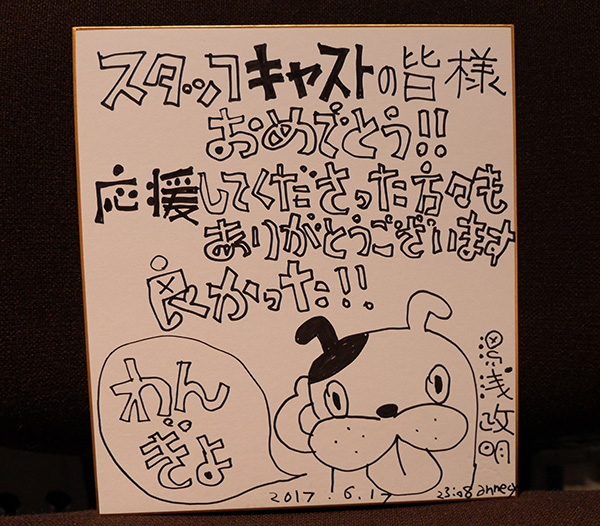 スタッフキャストの皆様
おめでとう!!
応援してくださった方々も
ありがとうございます
良かった!!
わん
ぎょ
湯浅政明
2017.6.17
23:08 annecy